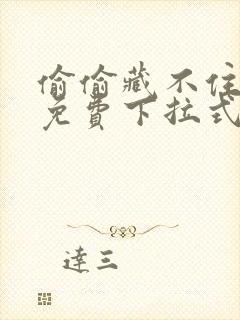 偷偷藏不住
免費下拉式
達三